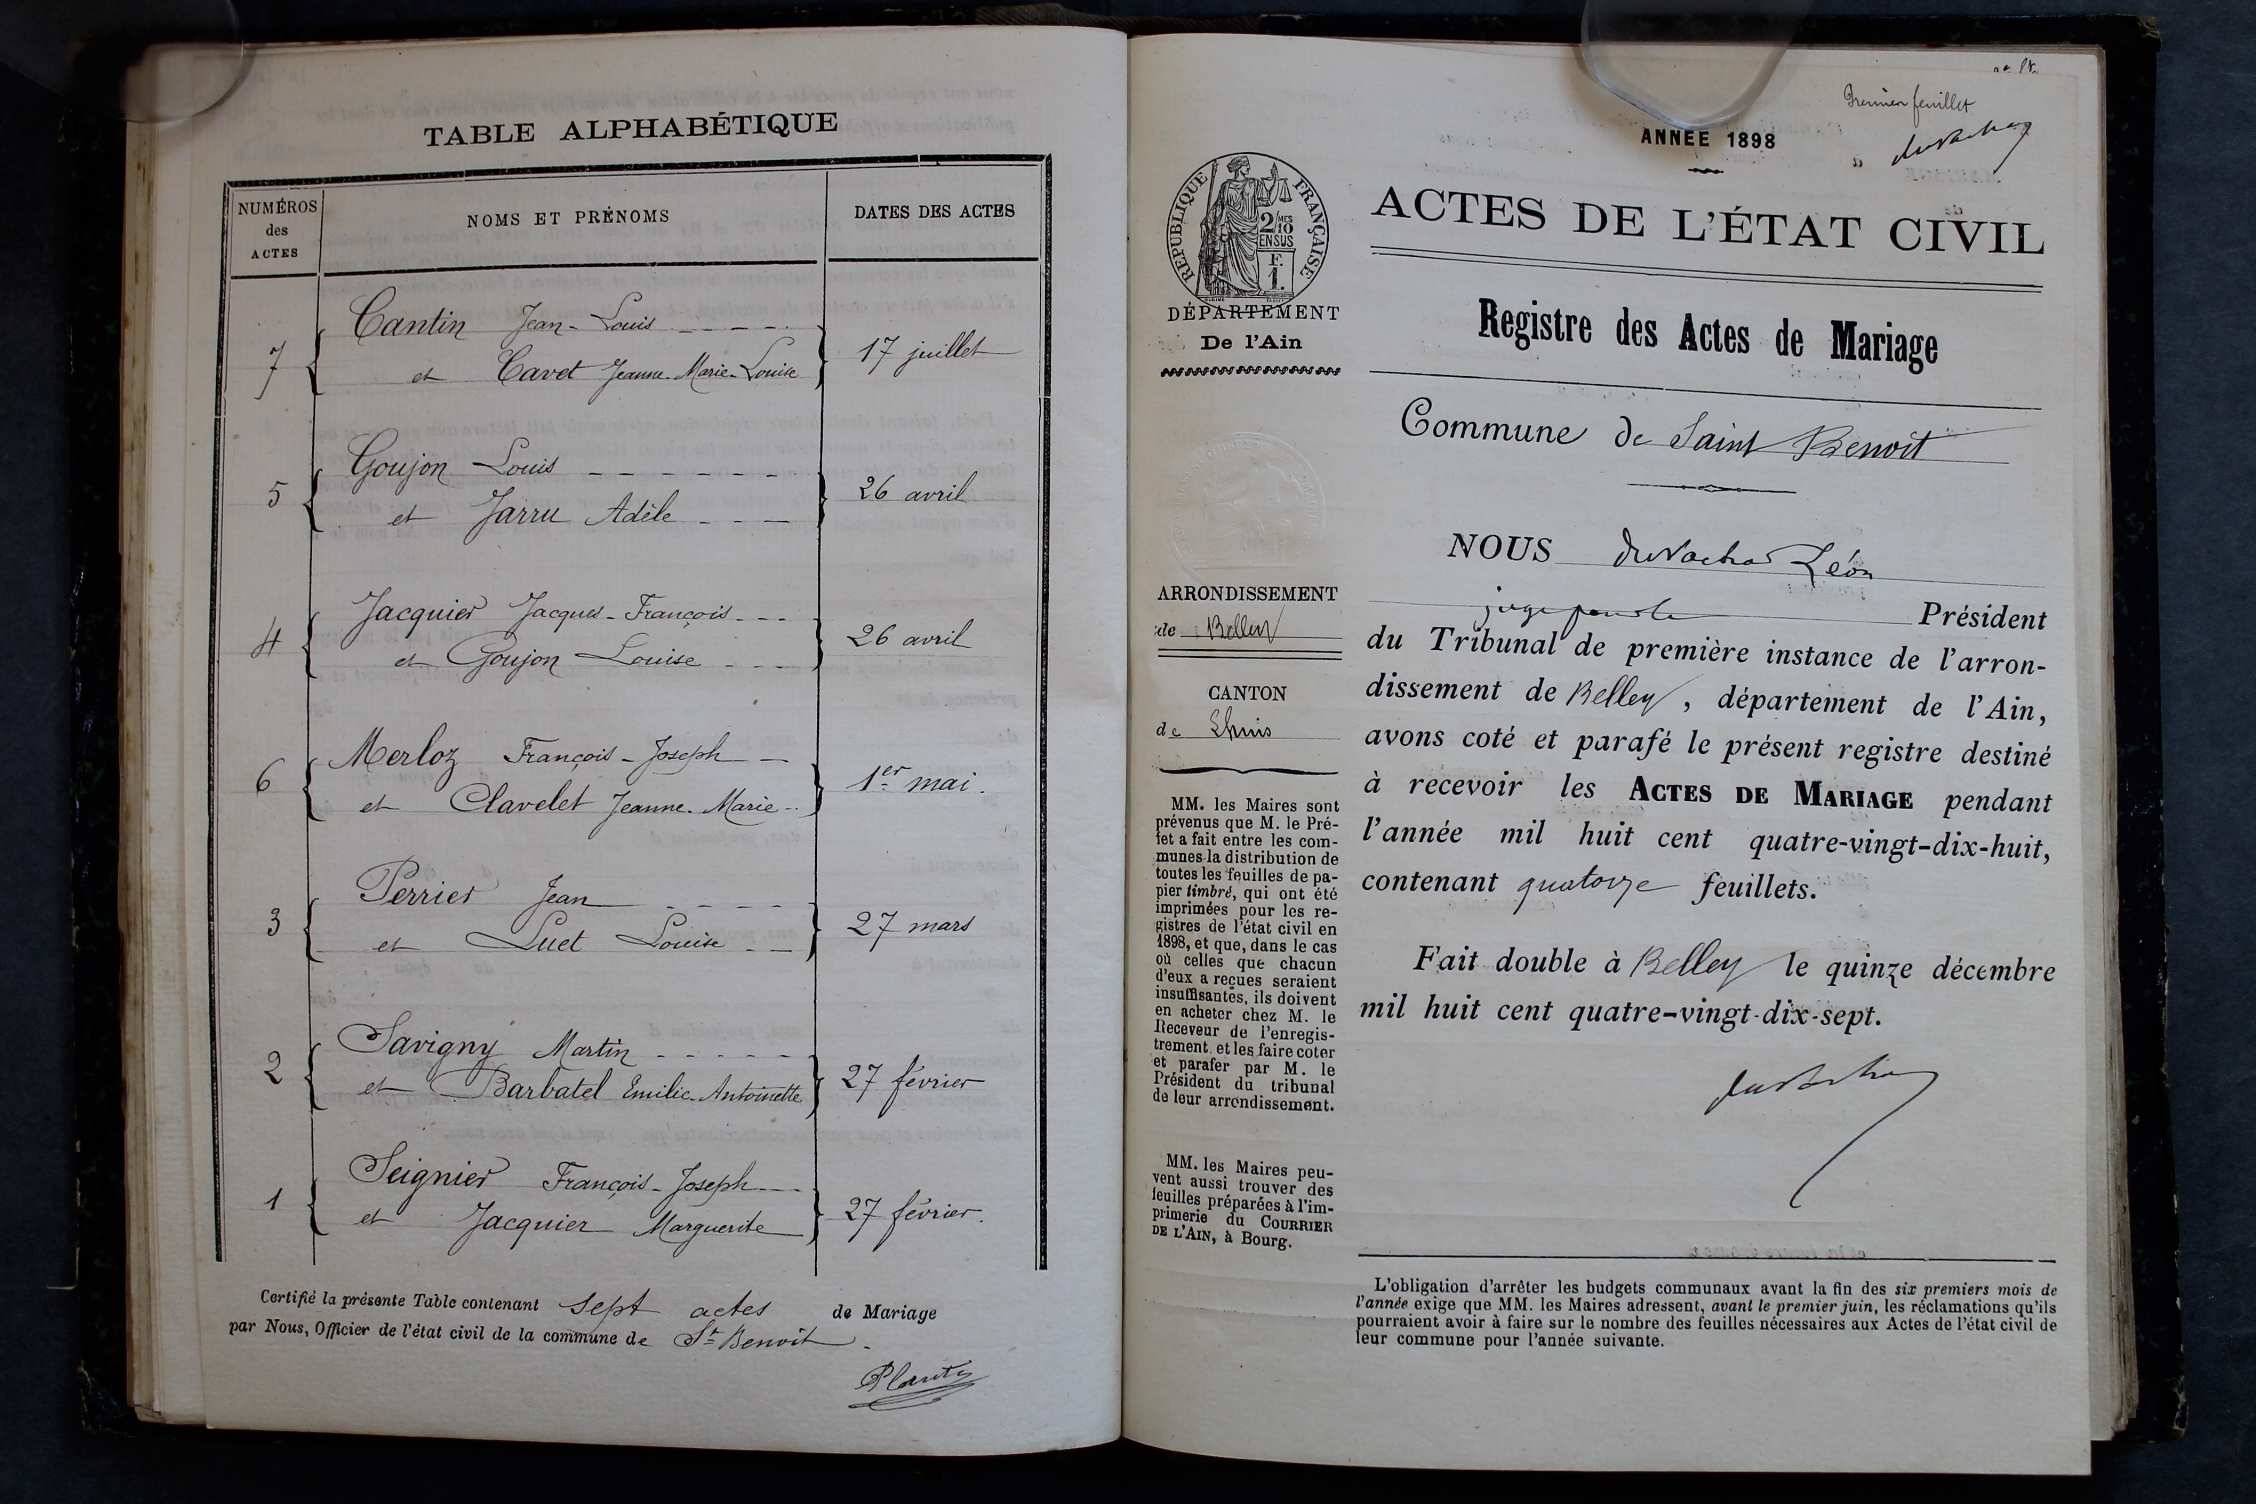 TABLE ALPHABÉTIQUE
NUMÉROS
des
ACTES
NOMS ET PRÉNOMS
DATES DES ACTES
7
Cantin Jean-Louis
et Cavet Jeanne-Marie-Louise
17 juillet
5
Goujon Louis
et Jarru Adèle
26 avril
4
Jacquier Jacques-François
et Goujon Louise
26 avril
6
Merloz François-Joseph
et Clavelet Jeanne-Marie
1er mai.
3
Perrier Jean
et Luet Louise
27 mars
2
Savigny Martin
et Barbatel Emilie-Antoinette
27 février
1
Seignier François-Joseph
et Jacquier Marguerite
27 février.
Certifié la présente Table contenant sept actes de Mariage
par Nous, Officier de l'état civil de la commune de St Benoit.
Premier feuillet
ANNÉE 1898
RÉPUBLIQUE FRANÇAISE
2/10
MES
EN SUS
F.
1.
DÉPARTEMENT
De l'Ain
ARRONDISSEMENT
de Belley
CANTON
de Lhuis
MM. les Maires sont
prévenus que M. le Pré-
fet a fait entre les com-
munes la distribution de
toutes les feuilles de pa-
pier timbré, qui ont été
imprimées pour les re-
gistres de l'état civil en
1898, et que, dans le cas
où celles que chacun
d'eux a reçues seraient
insuffisantes, ils doivent
en acheter chez M. le
Receveur de l'enregis-
trement et les faire coter
et parafer par M. le
Président du tribunal
de leur arrondissement.
MM. les Maires peu-
vent aussi trouver des
feuilles préparées à l'im-
primerie du COURRIER
DE L'AIN, à Bourg.
ACTES DE L'ÉTAT CIVIL
Registre des Actes de Mariage
Commune de Saint Benoit
NOUS Léon
Président
du Tribunal de première instance de l'arron-
dissement de Belley, département de l'Ain,
avons coté et parafé le présent registre destiné
à recevoir les ACTES DE MARIAGE pendant
l'année mil huit cent quatre-vingt-dix-huit,
contenant quatorze feuillets.
Fait double à Belley le quinze décembre
mil huit cent quatre-vingt-dix-sept.
L'obligation d'arrêter les budgets communaux avant la fin des six premiers mois de
l'année exige que MM. les Maires adressent, avant le premier juin, les réclamations qu'ils
pourraient avoir à faire sur le nombre des feuilles nécessaires aux Actes de l'état civil de
leur commune pour l'année suivante.